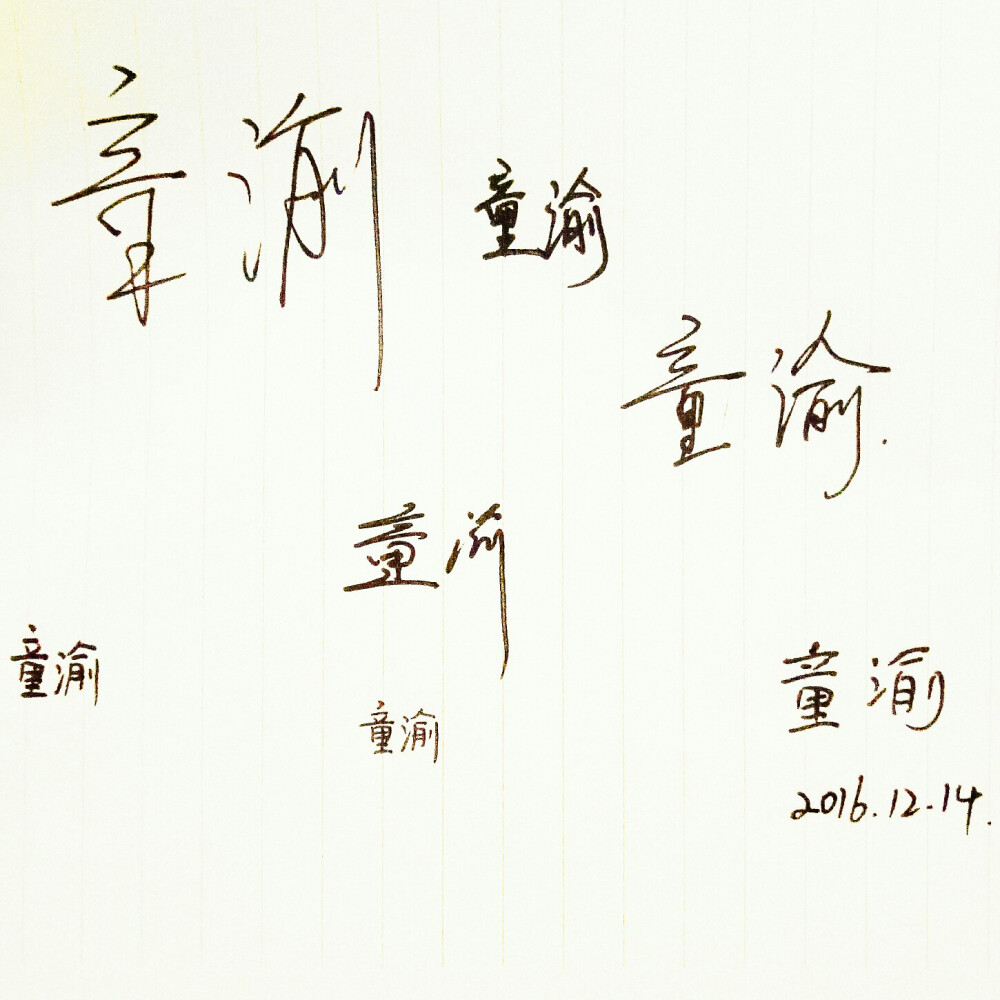 童渝
童渝
童渝
童渝
童渝
童渝
童渝
2016.12.14.